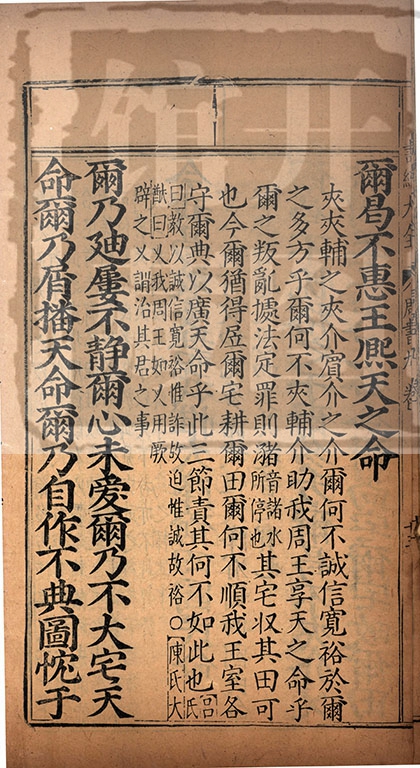 爾曷不惠王熙天之命
夾夾輔之夾介賓介之介爾何不誠信寬裕於爾
之多方乎爾何不夾輔介助我周王享天之命乎
爾之叛亂據法定罪則瀦音諸水所停也其宅収其田可
也今爾猶得居爾宅耕爾田爾何不順我王室各
守爾典以廣天命乎此三節責其何不如此也呂氏
曰教以誠信寬裕惟詐故迫惟誠故裕○陳氏大
猷曰乂我周王如乂用厥
辟之乂謂治其君之事
爾乃迪屢不静爾心未愛爾乃不大宅天
命爾乃屑播天命爾乃自作不典圖忱于